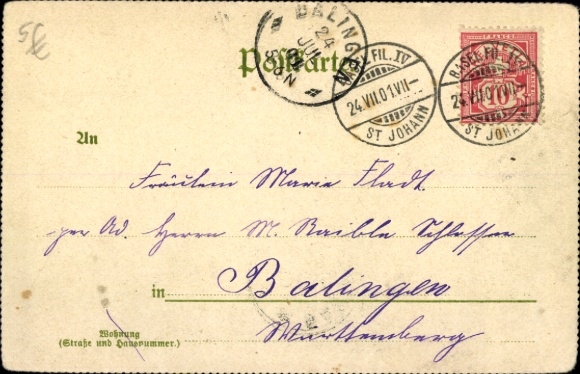 5£
Postkarte
BALINGEN
24 JUL
BASEL FIL. IV
24.VII.01.VII–
ST JOHANN
BASEL FIL. IV
24.VII.01.VII–
ST JOHANN
FRANCO
10
An
Fräulein Marie Fladt
per Ad. Herrn M. Raible Schlosser
in Balingen
Württemberg
Wohnung
(Straße und Hausnummer.)